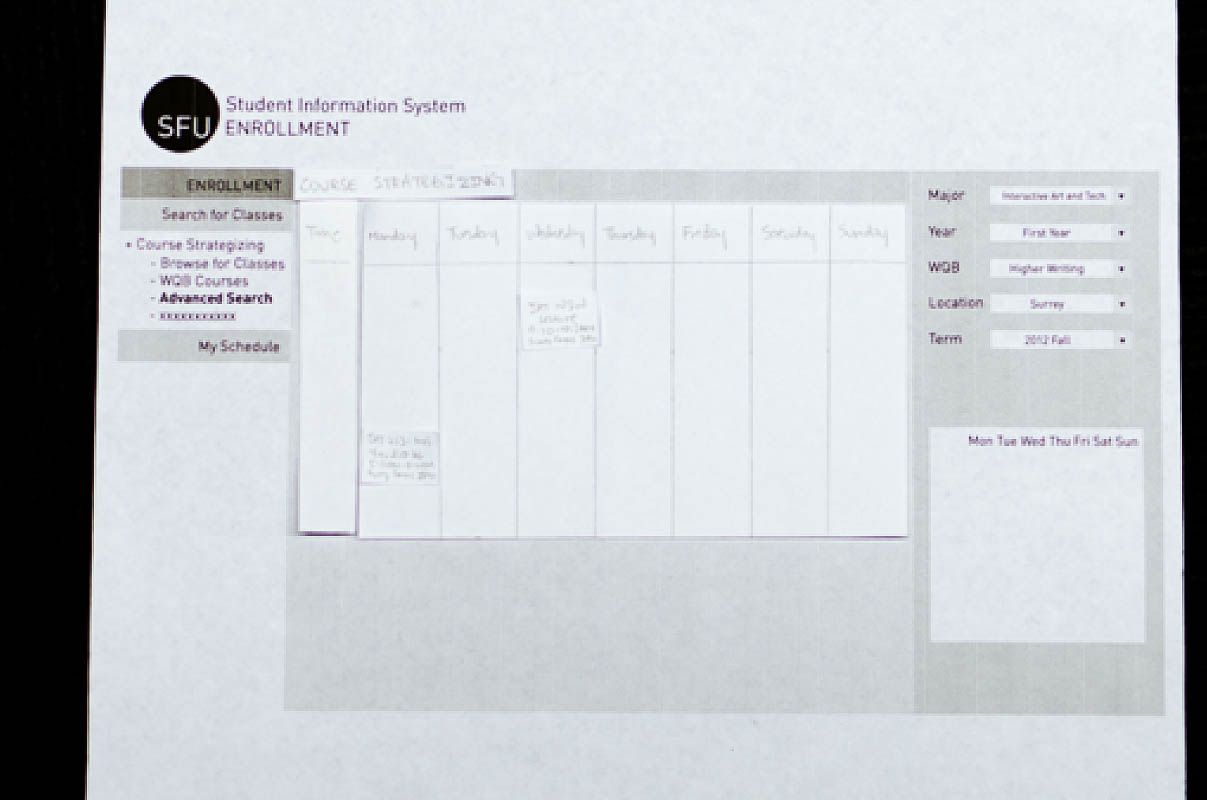 SFU
Student Information System
ENROLLMENT
ENROLLMENT
Search for Classes
• Course Strategizing
- Browse for Classes
- WQB Courses
- Advanced Search
- xxxxxxxxxxx
My Schedule
COURSE STRATEGIZING
Time Monday Tuesday Wednesday Thursday Friday Saturday Sunday
Major Interactive Art and Tech
Year First Year
WQB Higher Writing
Location Surrey
Term 2012 Fall
Mon Tue Wed Thu Fri Sat Sun